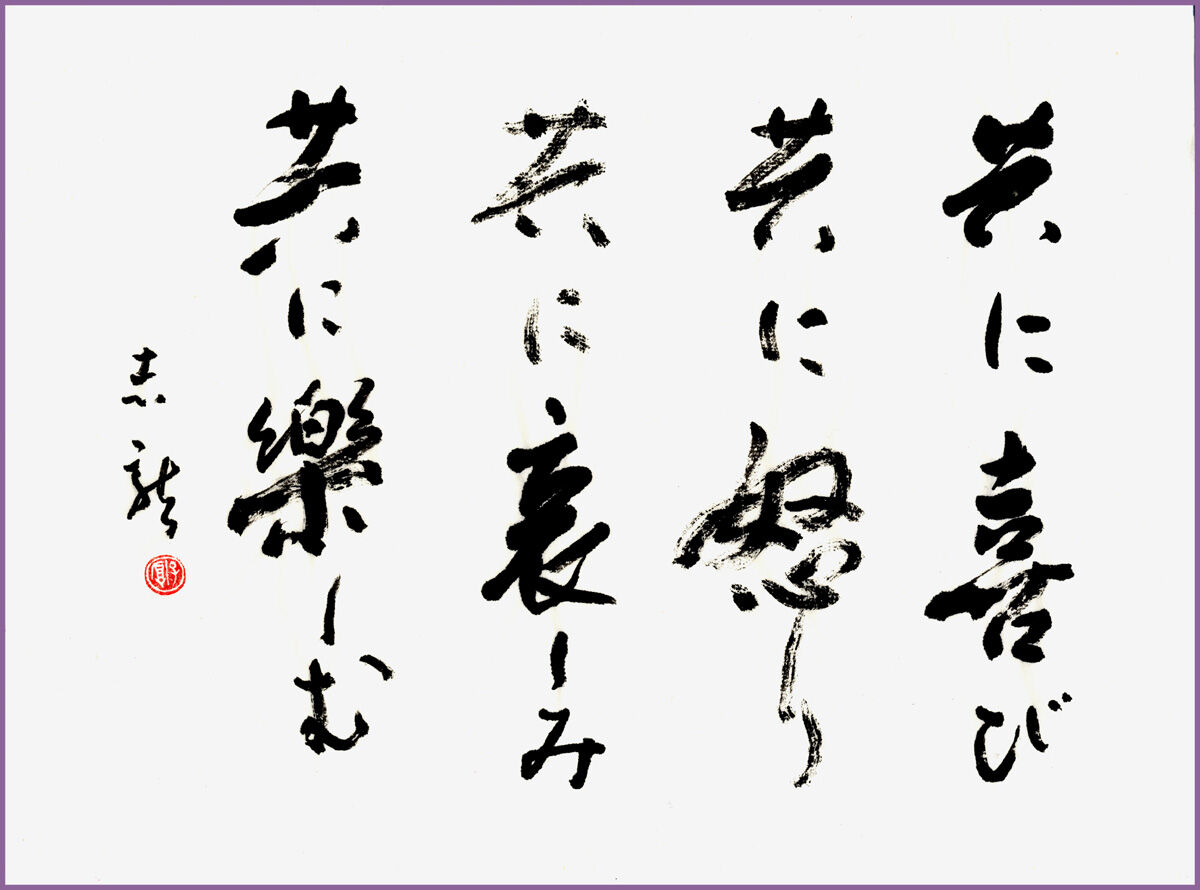 共に喜び
共に怒り
共に哀しみ
共に樂しむ
志龍